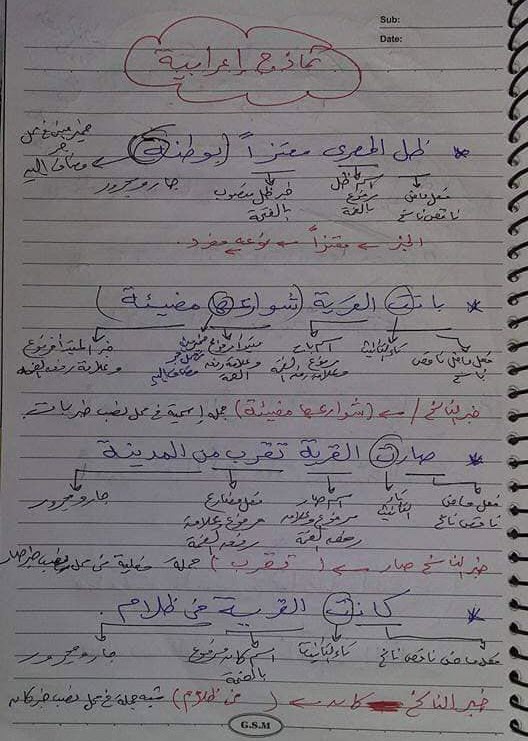 Sub:
Date:
نماذج إعرابية
* ظل المصرى معتزاً (بوطنه)
فعل ماض ناقص ناسخ
اسم ظل مرفوع بالضمة
خبر ظل منصوب بالفتحة
جار ومجرور
ضمير مبنى فى محل جر مضاف إليه
الخبر ← معتزاً ← نوعه مفرد.
* باتت القرية (شوارعها مضيئة)
فعل ماض ناقص ناسخ
تاء التأنيث
اسم بات مرفوع وعلامة رفعه الضمة
مبتدأ مرفوع وعلامة رفعه الضمة
مضاف إليه
خبر المبتدأ مرفوع وعلامة رفعه الضمة
خبر الناسخ / ← (شوارعها مضيئة) جملة إسمية فى محل نصب خبر بات
* صارت القرية تقرب من المدينة
فعل ماض ناقص ناسخ
تاء التأنيث
اسم صار مرفوع وعلامة رفعه الضمة
فعل مضارع مرفوع وعلامة رفعه الضمة
جار ومجرور
خبر الناسخ صار ← (تقرب) جملة فعلية فى محل نصب خبر صار
* كانت القرية فى ظلام.
فعل ماض ناقص ناسخ
تاء التأنيث
اسم كان مرفوع بالضمة
جار ومجرور
خبر الناسخ كان ← (فى ظلام) شبه جملة فى محل نصب خبر كان
G.S.M